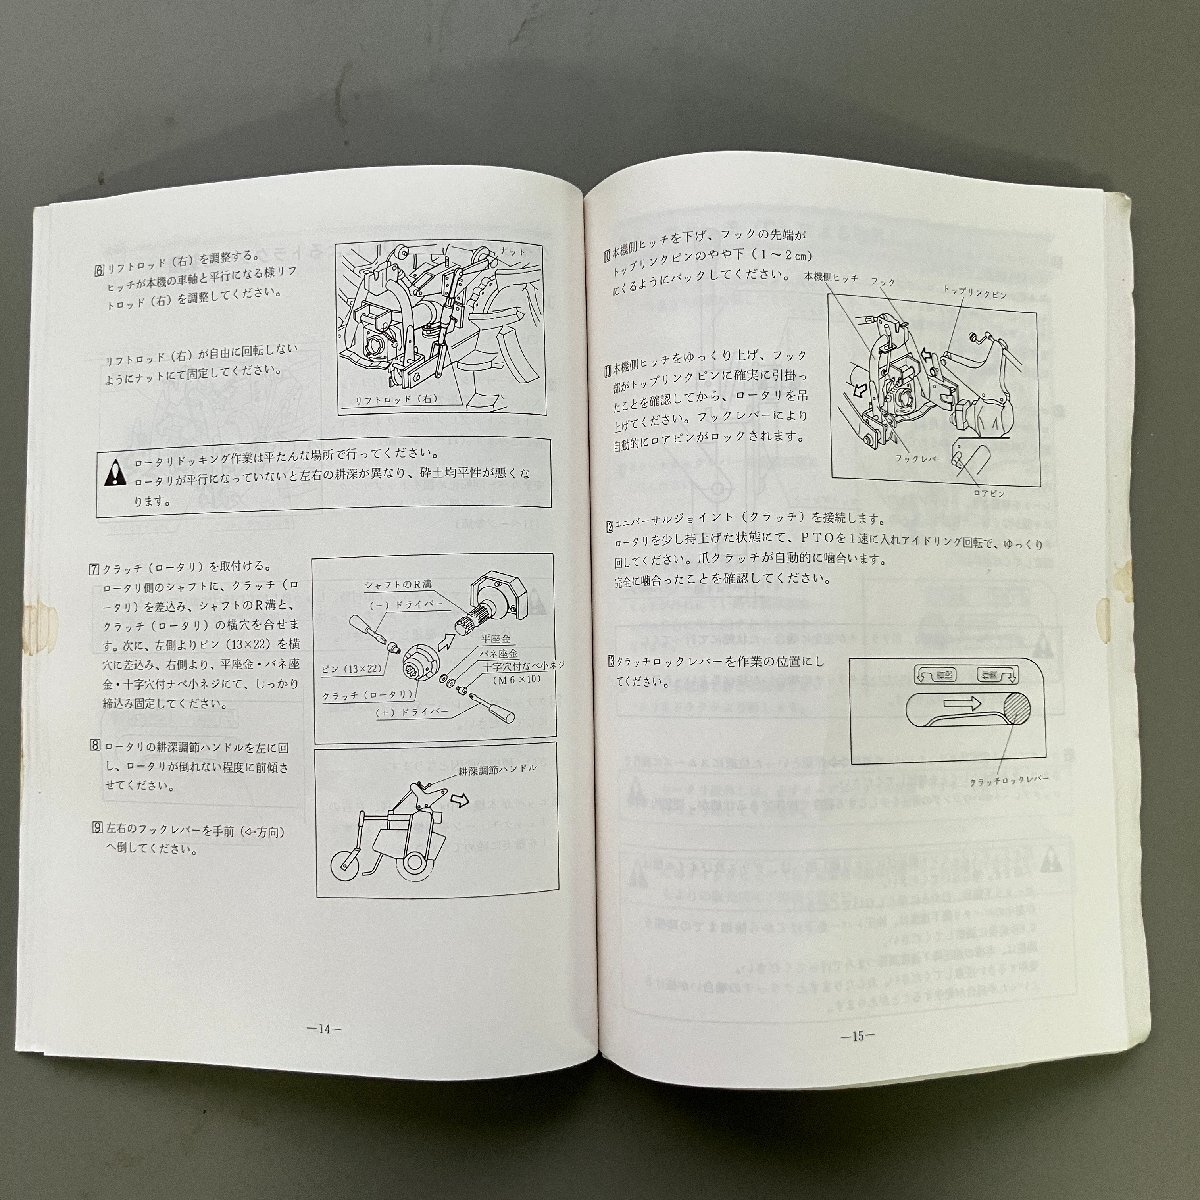 6 リフトロッド（右）を調整する。
ヒッチが本機の車輪と平行になる様リフ
トロッド（右）を調整してください。
リフトロッド（右）が自由に回転しない
ようにナットにて固定してください。
ナット
リフトロッド（右）
ロータリドッキング作業は平たんな場所で行ってください。
ロータリが平行になっていないと左右の耕深が異なり、砕土均平性が悪くな
ります。
7 クラッチ（ロータリ）を取付ける。
ロータリ側のシャフトに、クラッチ（ロ
ータリ）を差込み、シャフトのR溝と、
クラッチ（ロータリ）の横穴を合せま
す。次に、左側よりピン（13×22）を横
穴に差込み、右側より、平座金・バネ座
金・十字穴付ナベ小ネジにて、しっかり
締込み固定してください。
シャフトのR溝
（－）ドライバー
平座金
バネ座金
十字穴付なべ小ネジ
（M6×10）
ピン（13×22）
クラッチ（ロータリ）
（＋）ドライバー
8 ロータリの耕深調節ハンドルを左に回
し、ロータリが倒れない程度に前傾さ
せてください。
耕深調節ハンドル
9 左右のフックレバーを手前（⇦方向）
へ倒してください。
―14―
10 本機側ヒッチを下げ、フックの先端が
トップリンクピンのやや下（1～2㎝）
にくるようにバックしてください。
本機側ヒッチ
フック
トップリンクピン
11 本機側ヒッチをゆっくり上げ、フック
部がトップリンクピンに確実に引掛っ
たことを確認してから、ロータリを吊
上げてください。フックレバーにより
自動的にロアピンがロックされます。
フックレバー
ロアピン
12 ユニバーサルジョイント（クラッチ）を接続します。
ロータリを少し持上げた状態にて、PTOを1速に入れアイドリング回転で、ゆっくり
回してください。爪クラッチが自動的に噛合います。
完全に噛合ったことを確認してください。
13 クラッチロックレバーを作業の位置にし
てください。
クラッチロックレバー
―15―